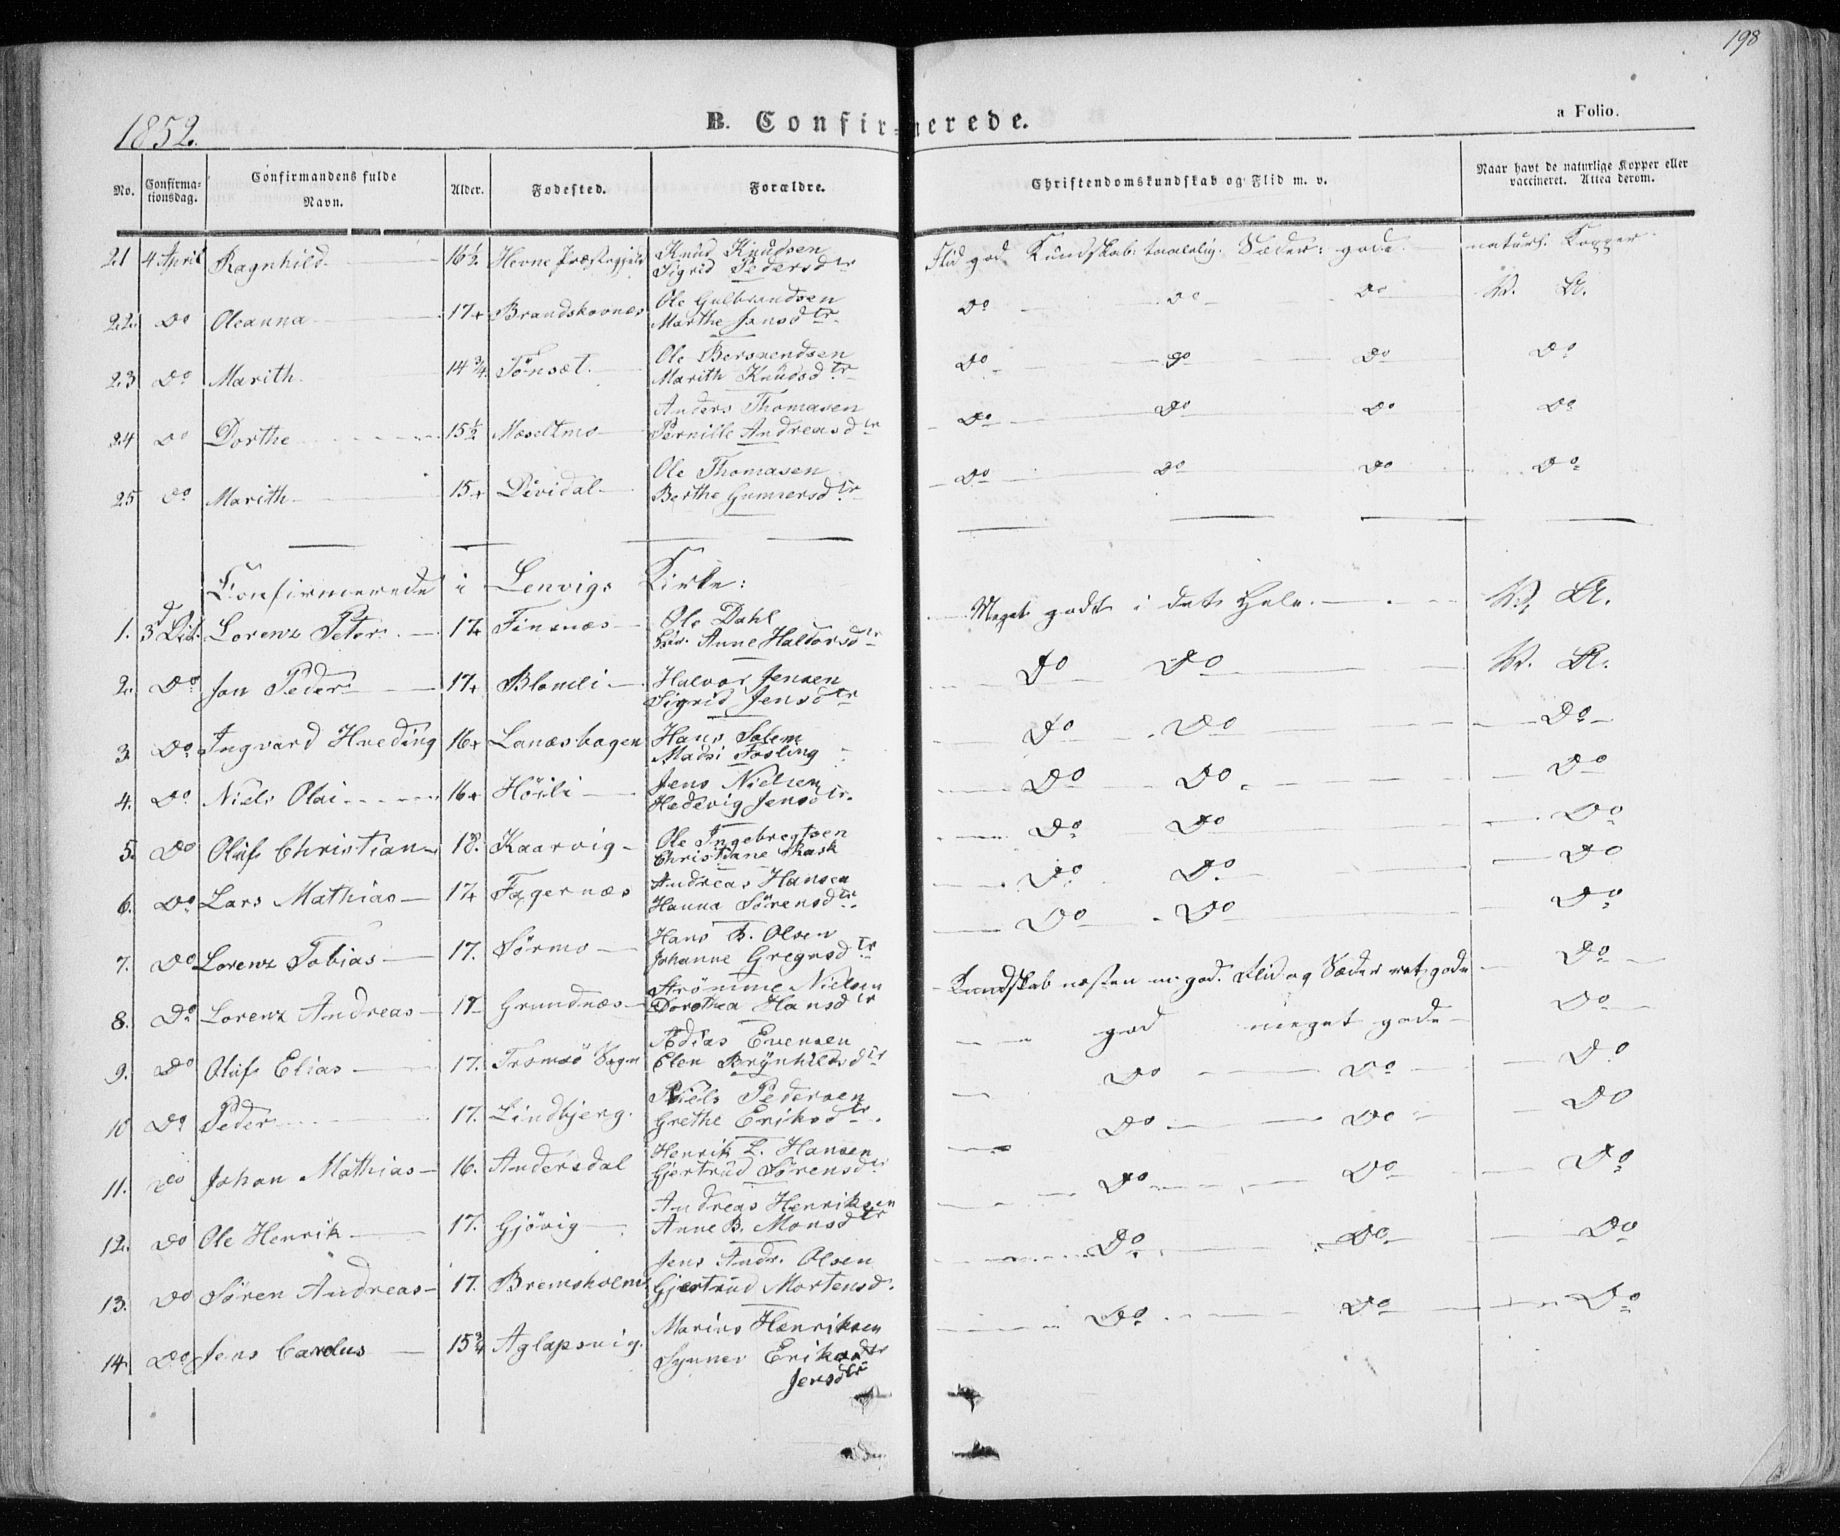 198
1852.
B. Confirmerede.
a Folio.
No. Confirma-tionsdag. Confirmandens fulde Navn. Alder. Fødested. Forældre. Christendomskundskab og Flid m. v. Naar havt de naturlige Kopper eller vaccineret. Attea derom.
21 4 April Ragnhild 16½ Hevne Præstegjeld Knud Knudsen Flid god Kundskab: taalelig. Sæder: gode naturl. Kopper
Sigrid Pedersdtr
22. Do Oleanna 17 Ole Gulbrandsen Do Do Do V. A.
Marthe Jonsdtr
23 Do Marith 14¾ Tönset. Ole Bersvendsen Do Do Do Do
Marith Knudsdtr
24 Do Dorthe 15½ Moseltmo Anders Thomasen Do Do Do Do
Pernille Andreasdtr
25 Do Marith 15 Dividal Ole Thomasen Do Do Do Do
Berthe Gunnersdtr
Confirmerede i Lenvigs Kirke:
1. Lorenz Peter 17 Finsnæs Ole Dahl Meget godt i det Hele. V. A.
Anne Haldorsdtr
2. Do Jon Peder 17 Blomli Halvor Jensen Do Do V. A.
Sigrid Jensdtr
3. Do Ingvard Hveding 16 Lanæsbogen Hans Solem Do Do Do
Madsi Fosling
4. Do Niels Olai 16 Höili Jens Nielsen Do Do Do
Hedevig Jensdtr.
5. Do Oluf Christian 18. Kaarvig Ole Ingebregtsen Do Do Do
Christiane Kask
6. Do Lars Mathias 17 Fagernæs Andreas Hansen Do Do Do
Hanna Sörensdtr.
7. Do Lorenz Tobias 17. Sörmo Hans B. Olsen Do Do Do
Johanne Gregersdtr
8. Do Lorenz Andreas 17 Grundnæs Strömme Nielsen Kundskab næsten m: god. Flid og Sæder ret gode Do
Dorothea Hansdtr
9. Do Oluf Elias 17. Tromsö Sogn Adias Evensen god meget gode Do
Elen Brynhildsdtr
10 Do Peder 17. Lindbjerg. Niels Pedersen Do Do Do
Grethe Eriksdtr.
11. Do Johan Mathias 16. Andersdal Henrik L. Hansen Do Do Do
Gjertrud Sörensdtr
12. Do Ole Henrik 17. Gjövig Andreas Henriksen Do Do Do
Anne B. Monsdtr
13. Do Sören Andreas 17. Bremsholm Jens Andr. Olsen Do Do Do
Gjertrud Mortensd.
14 Do Jens 15¾ Aglapsvig. Marius Henriksen Do Do Do
Synnev Eriksdtr
Jensdtr